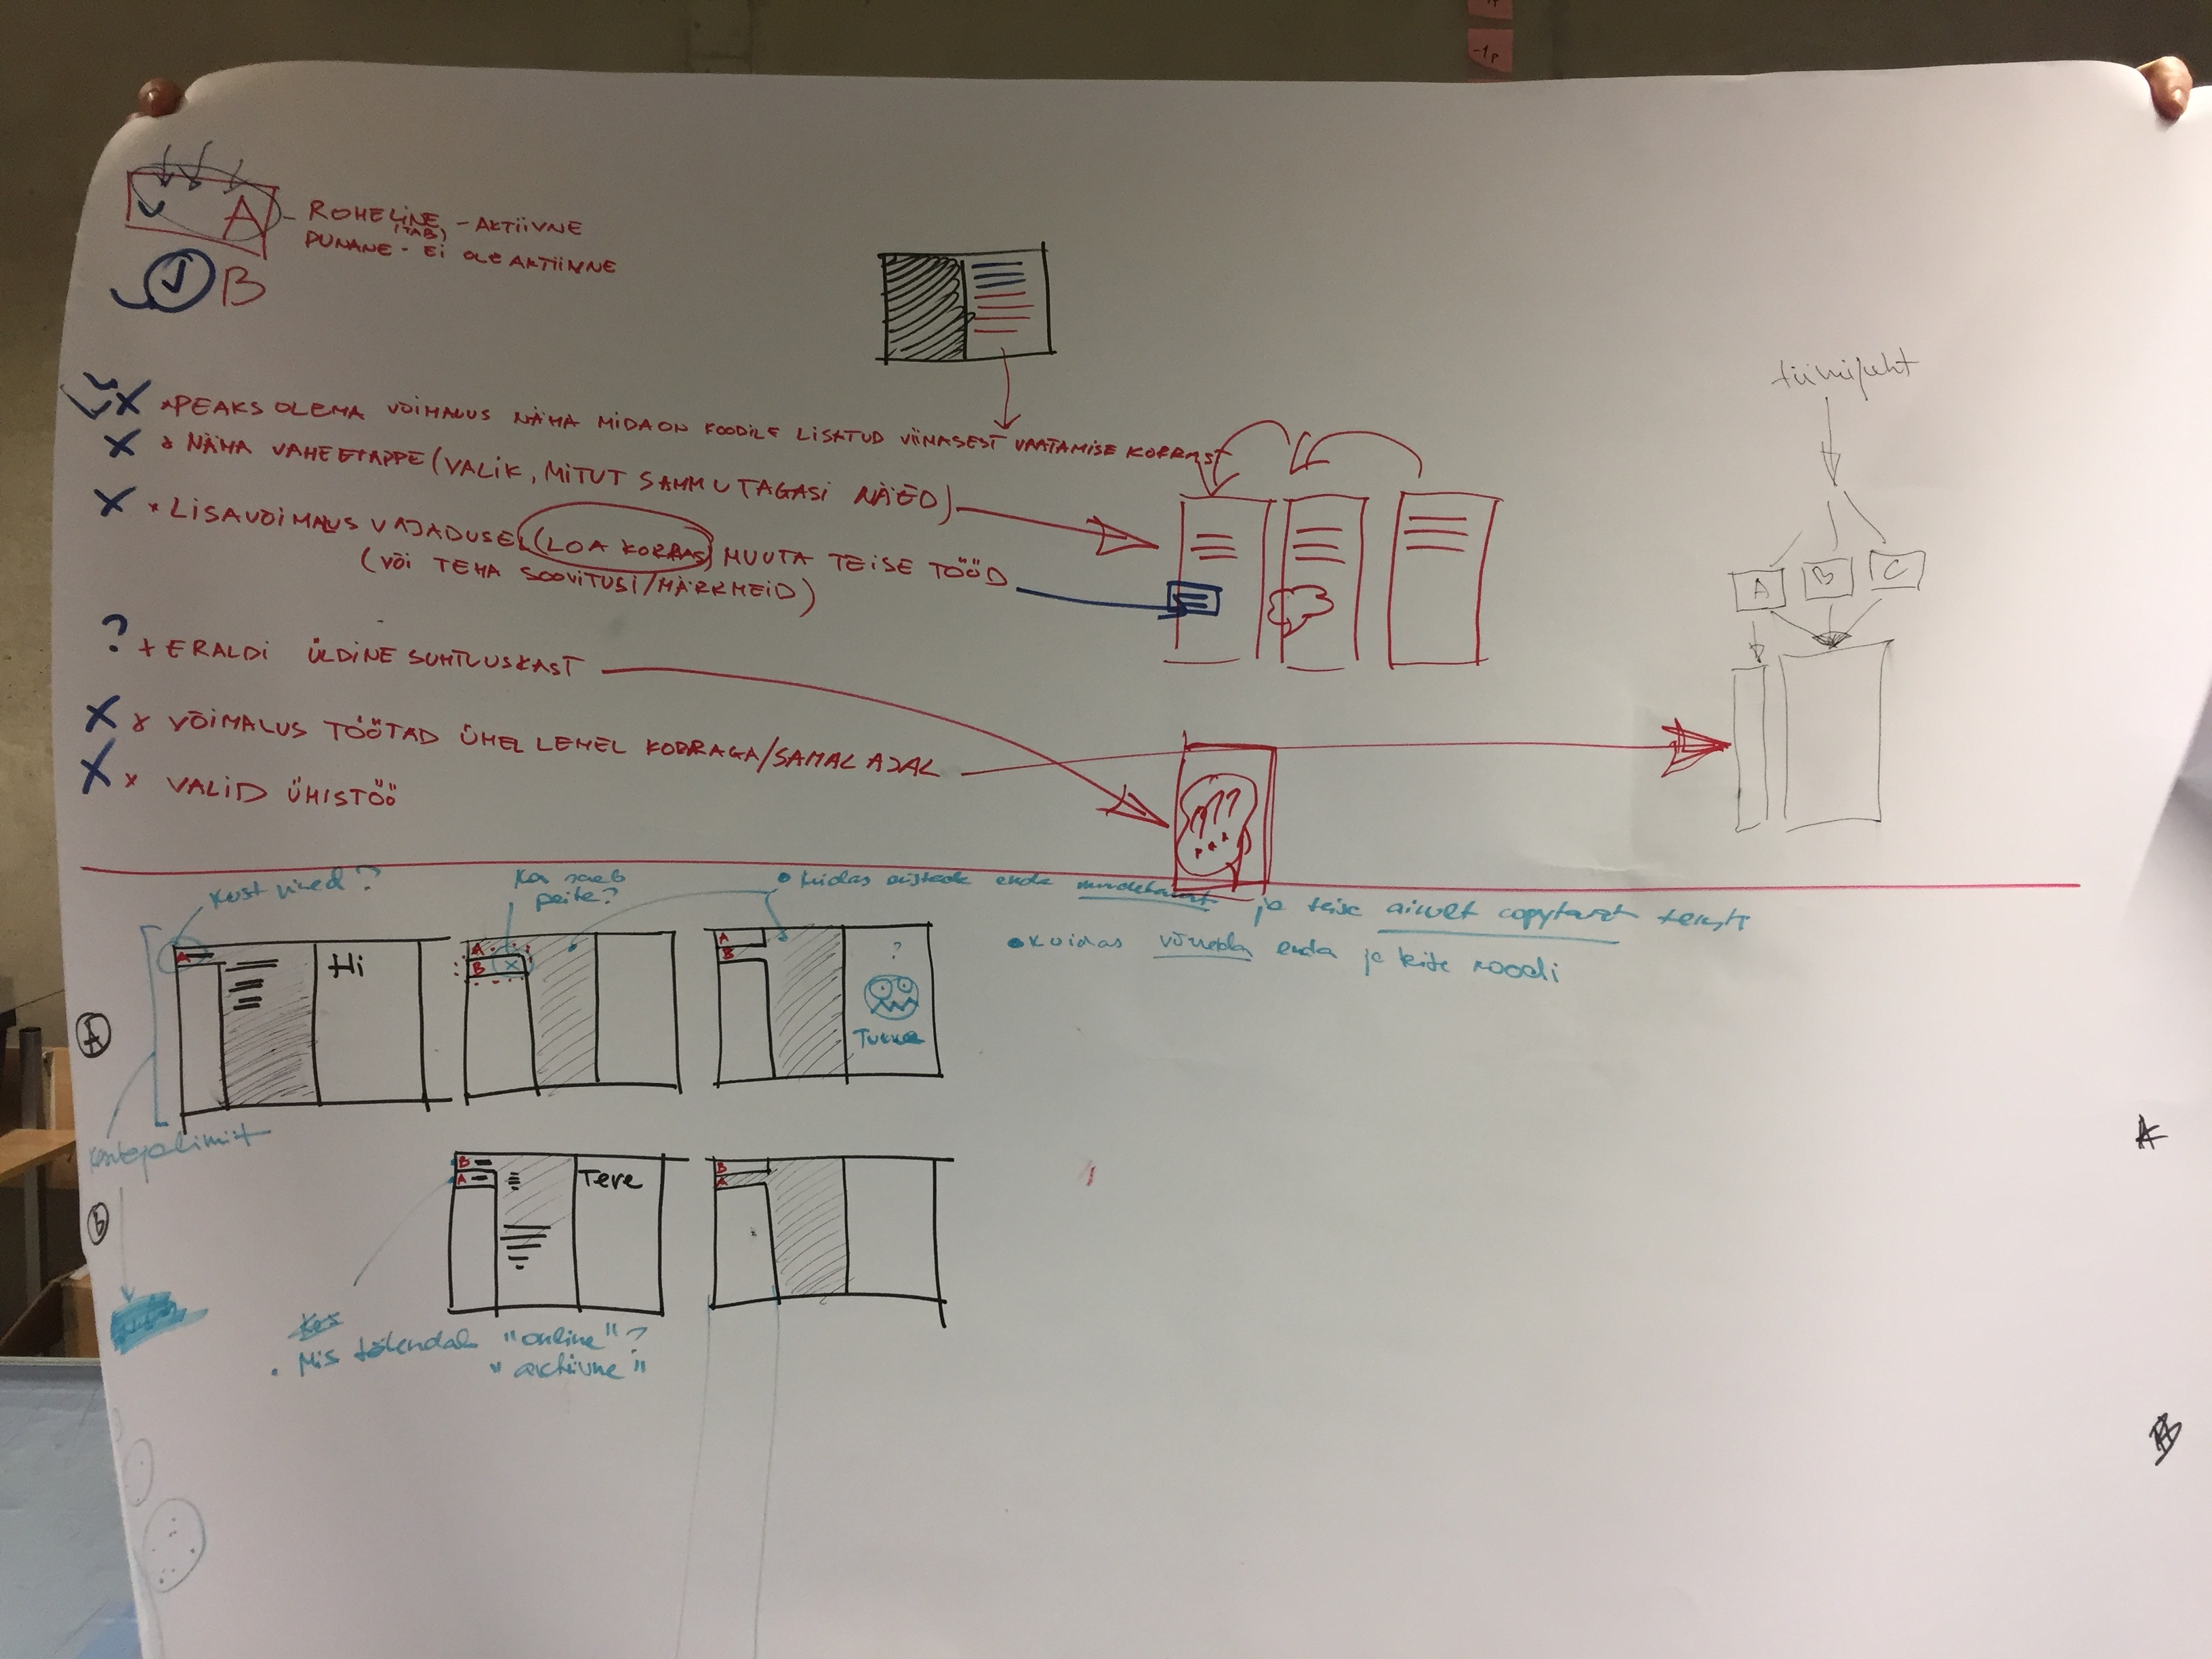 -1p
A
ROHELINE - AKTIIVNE
(TAB)
PUNANE - EI OLE AKTIIVNE
B
PEAKS OLEMA VÕIMALUS NÄHA MIDA ON KOODILE LISATUD VIIMASEST VAATAMISE KORRAST
NÄHA VAHEETAPPE (VALIK, MITUT SAMMU TAGASI NÄED)
LISAVÕIMALUS VAJADUSEL (LOA KORRAS) MUUTA TEISE TÖÖD
(VÕI TEHA SOOVITUSI/MÄRKMEID)
? + ERALDI ÜLDINE SUHTLUSKAST
VÕIMALUS TÖÖTAD ÜHEL LEHEL KORRAGA/SAMAL AJAL
x VALID ÜHISTÖÖ
tiimijuht
A B C
???
Kust nimed?
Ka saeb
peita?
• Kuidas eristada enda
ja teise ainult copytavat teksti
• Kuidas võrrelda enda ja teise koodi
A
A
Hi
A
B
A
B
?
Tukka
B
B
A
Tere
B
A
Kes
• Mis tähendab "online"?
"aktiivne"
A
B